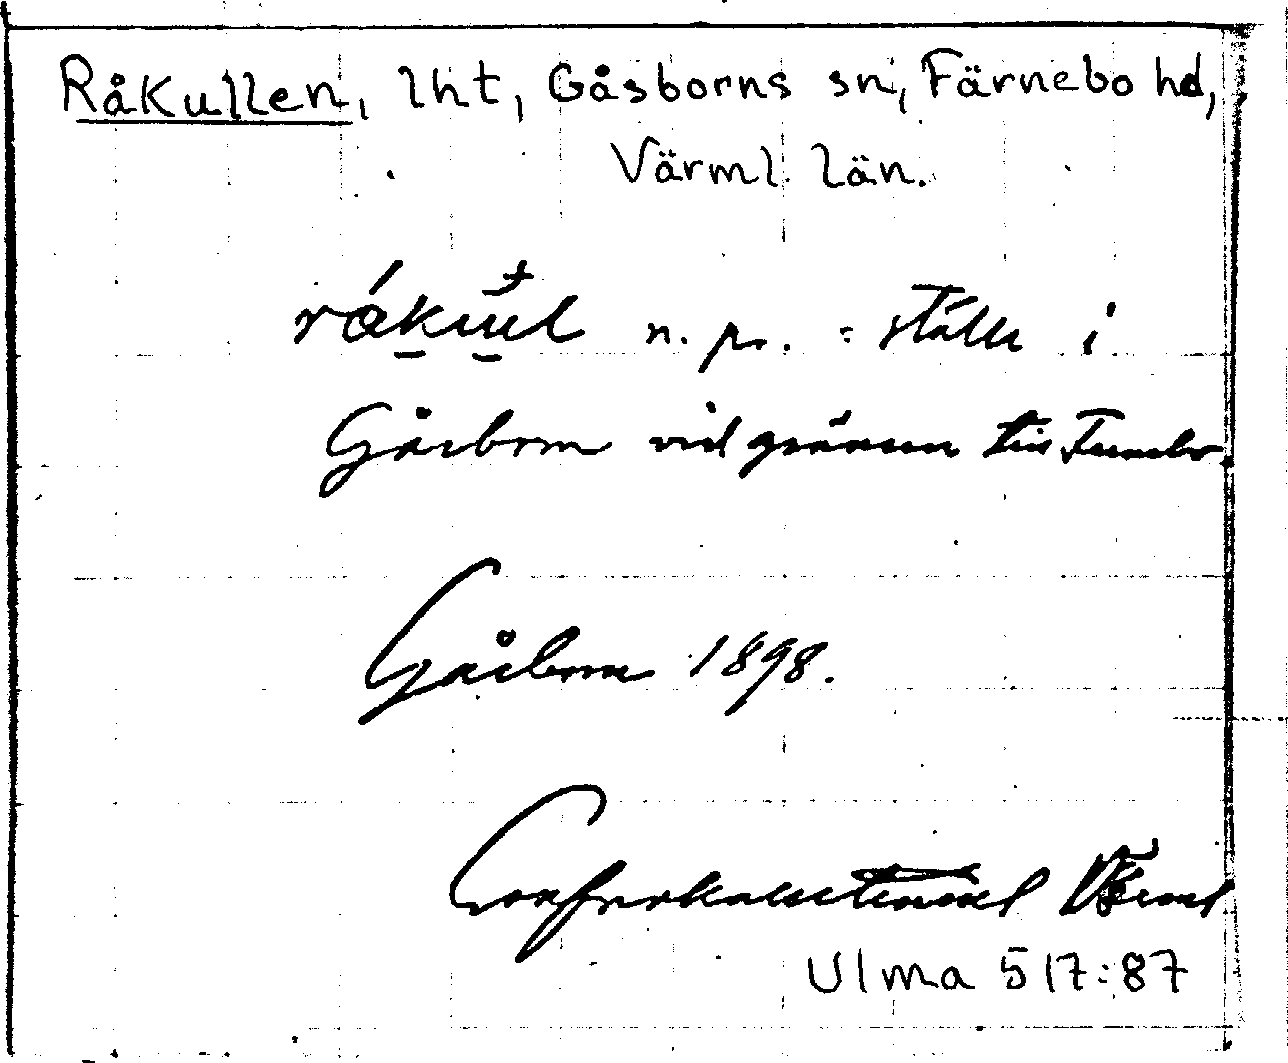 Råkullen, lht, Gåsborns sn, Färnebo hd,
Värml. län.
n. pr. = ställe i
Gåsborn vid gränsen till
Gåsborn 1898.
Ulma 517:87